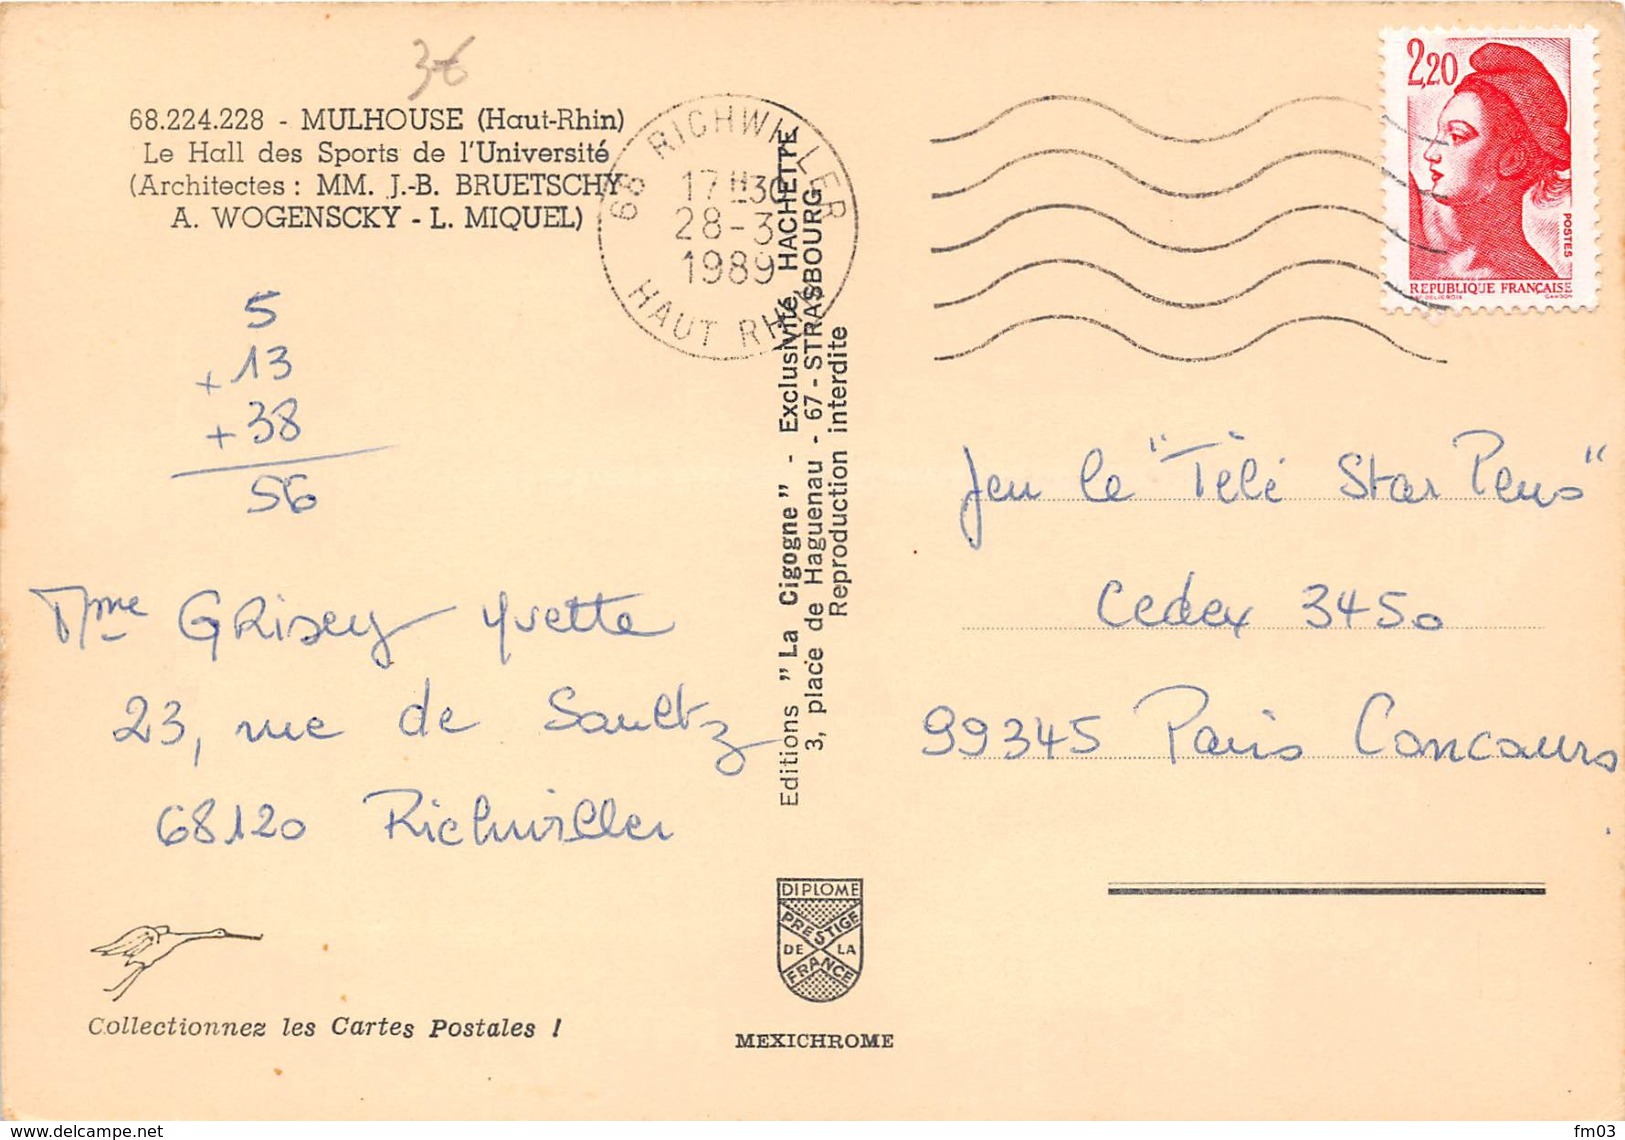 3€
68.224.228 - MULHOUSE (Haut-Rhin)
Le Hall des Sports de l'Université
(Architectes : MM. J.-B. BRUETSCHY
A. WOGENSCKY - L. MIQUEL)
68 RICHWILLER
17H30
28-3
1989
HAUT RHIN
2,20
POSTES
REPUBLIQUE FRANÇAISE
5
+ 13
+ 38
56
Mme GRisey Yvette
23, rue de Soultz
68120 Richwiller
Editions "La Cigogne" - Exclusivité HACHETTE
3, place de Haguenau - 67 - STRASBOURG
Reproduction interdite
Jeu le "Télé Star Plus"
Cedex 3450
99345 Paris Concours
DIPLOME
PRESTIGE
DE LA
FRANCE
Collectionnez les Cartes Postales !
MEXICHROME
www.delcampe.net
fm03